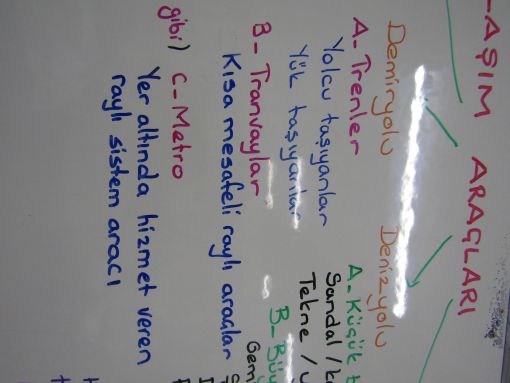 -AŞIM ARAÇLARI
Demiryolu
A- Trenler
Yolcu taşıyanlar
Yük taşıyanlar
B- Tranvaylar
Kısa mesafeli raylı araçlar
gibi)
C- Metro
Yer altında hizmet veren
raylı sistem aracı
Denizyolu
A- Küçük t
Sandal /
Tekne /
B- Büy
Gem